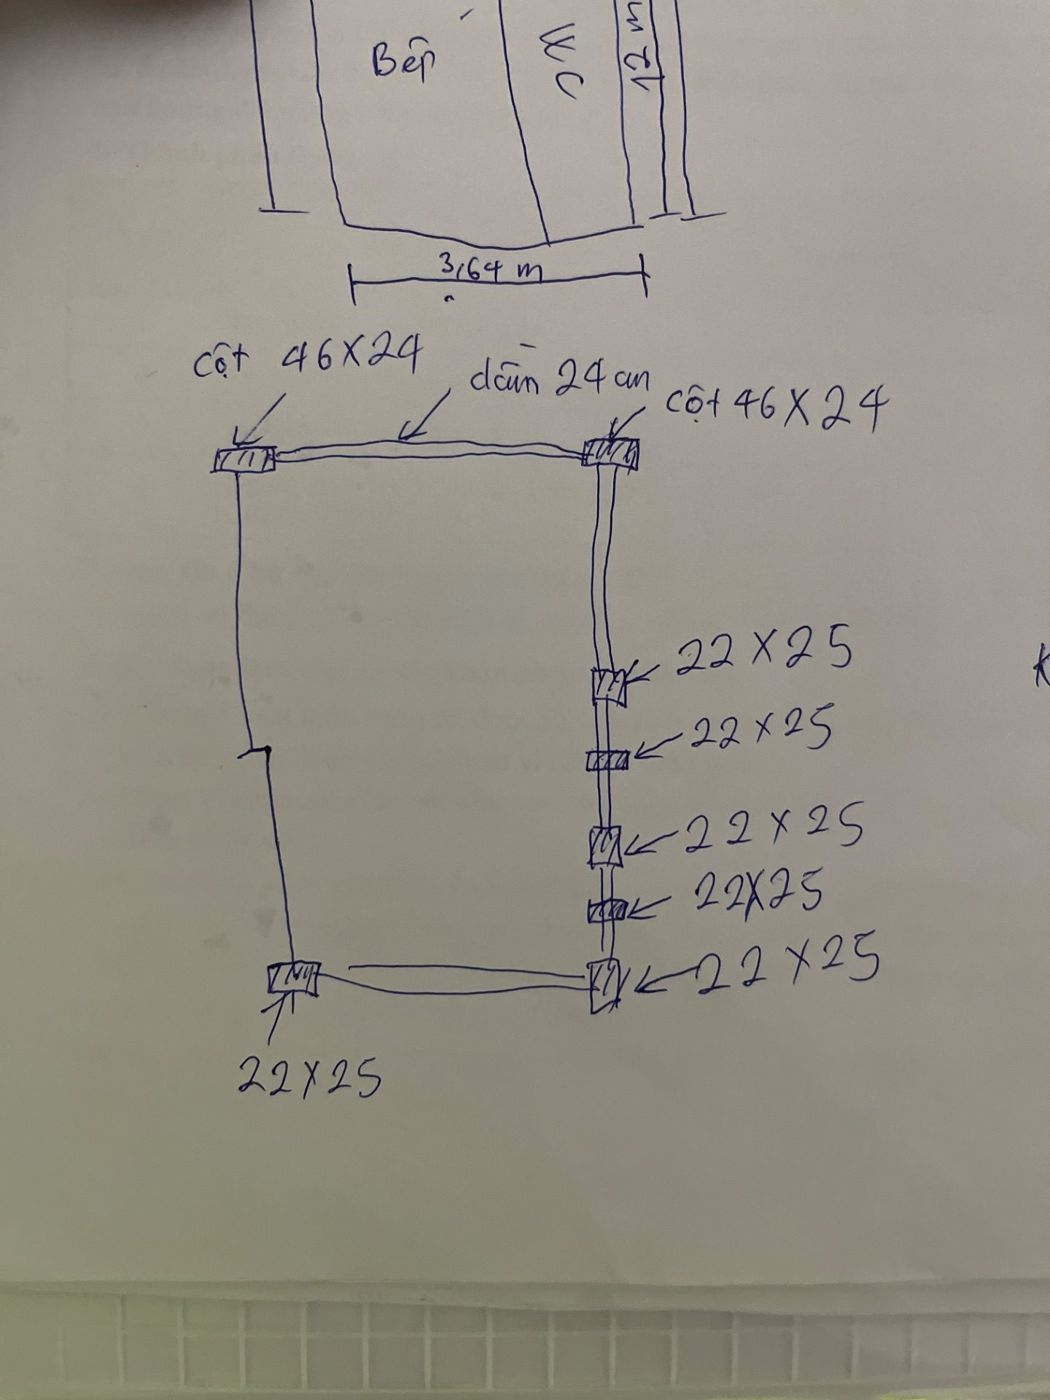 Bếp
WC
12 m
3,64 m
cột 46X24
dầm 24 cm
cột 46X24
22X25
22X25
22X25
22X25
22X25
22X25